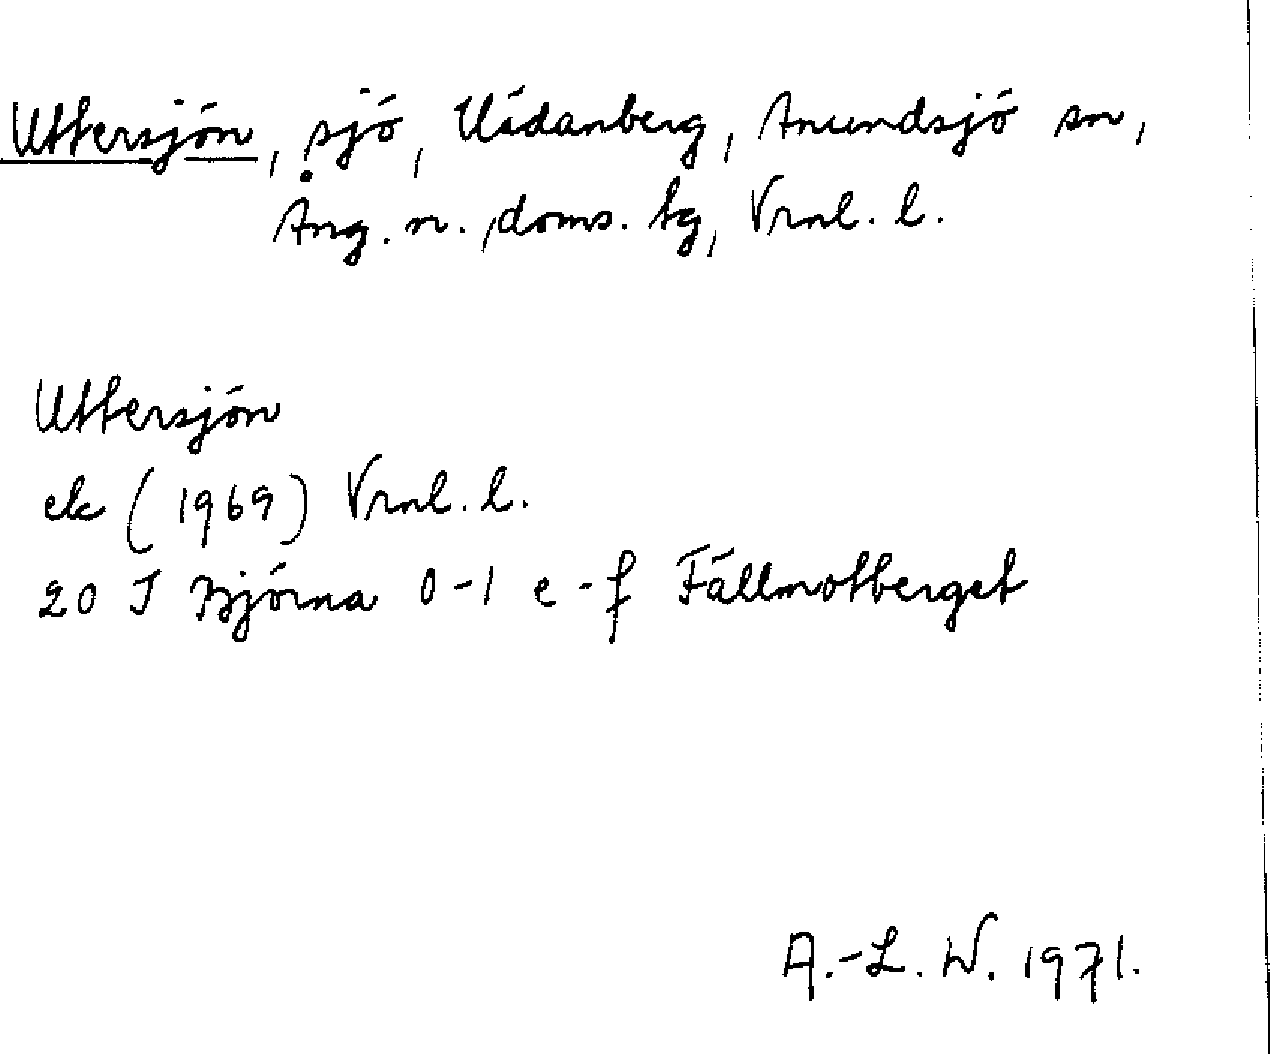 Uttersjön, sjö, Usdanberg, Anundsjö sn,
Ång. n. doms. tg, Vrnl. l.
Uttersjön
ek (1969) Vrnl. l.
20 J Björna 0-1 e-f Fällmotberget
A.-L. W. 1971.